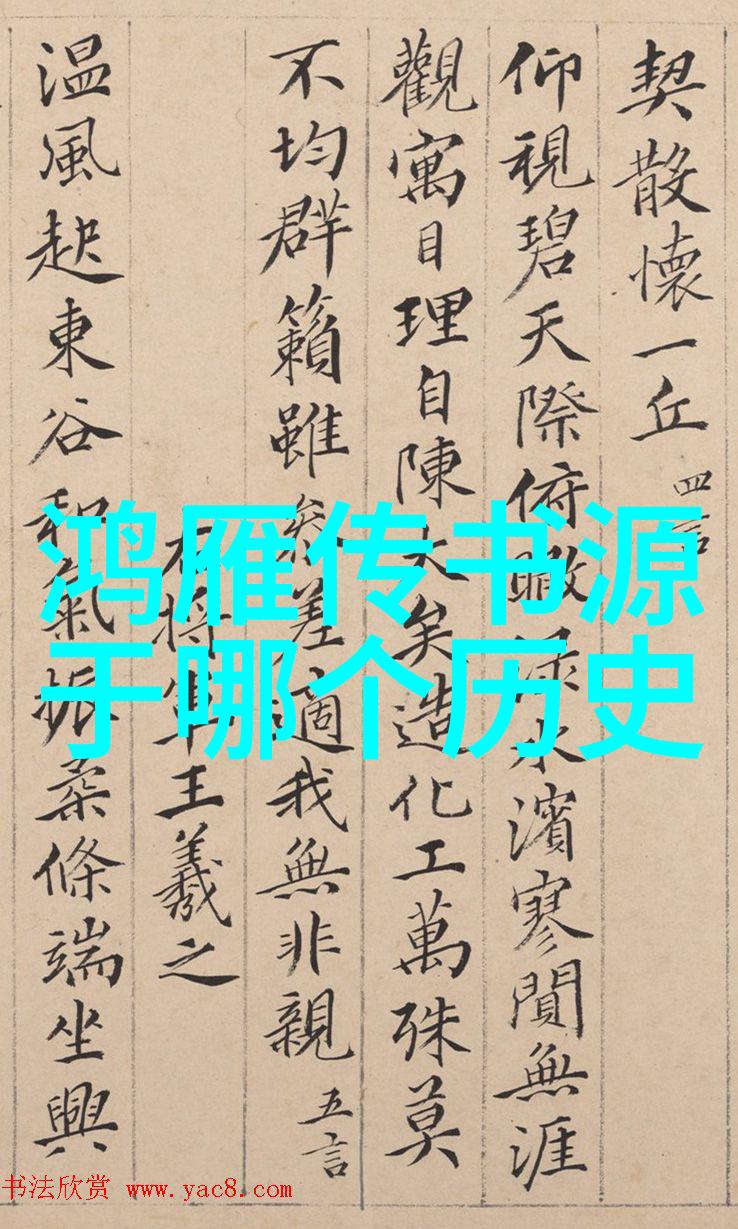 契散懷一丘 四言
仰視碧天際俯瞰淥水濱寥閴無涯
觀寓目理自陳大矣造化工萬殊莫
不均群籟雖參差適我無非親 五言
右將軍王羲之
温風起東谷和氣振柔條端坐興
鸿雁传书源
于哪个历史
书法欣赏 www.yac8.com